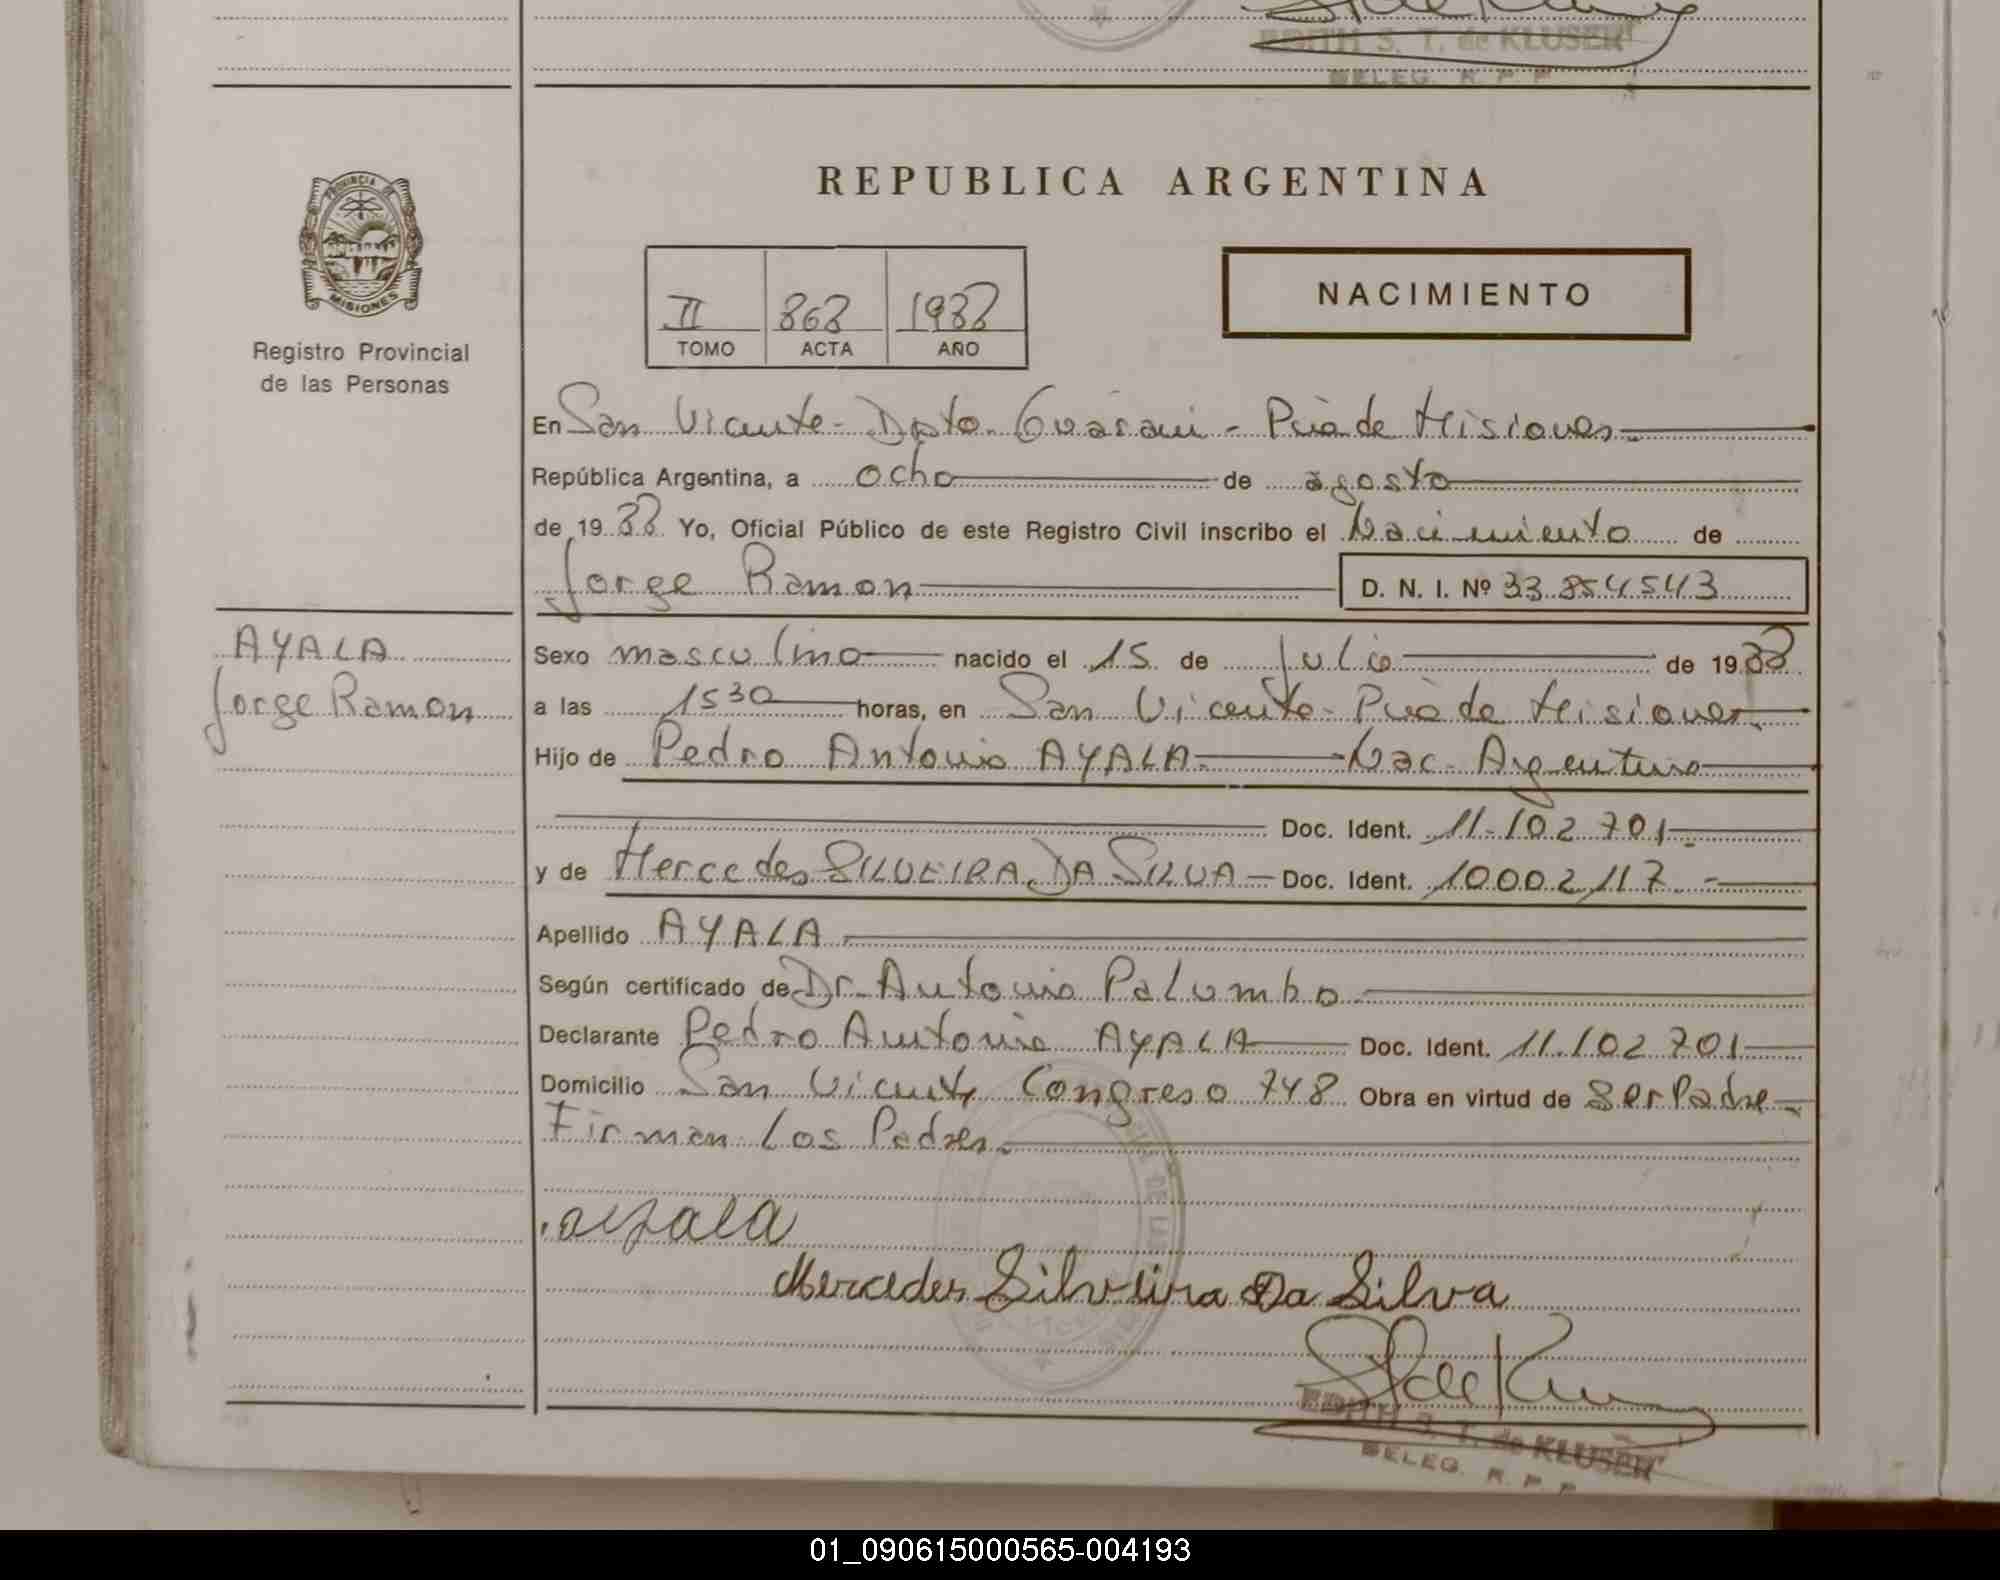 EDITH S. T. de KLUSER
DELEG. R. P. P.
PROVINCIA DE
MISIONES
Registro Provincial
de las Personas
REPUBLICA ARGENTINA
II 868 1988
TOMO ACTA AÑO
NACIMIENTO
En San Vicente - Dpto. Guarani - Pcia de Misiones.
República Argentina, a ocho de agosto
de 1988 Yo, Oficial Público de este Registro Civil inscribo el Nacimiento de
Jorge Ramon D. N. I. Nº 33.854543
AYALA
Jorge Ramon
Sexo masculino nacido el 15 de Julio de 1988
a las 1530 horas, en San Vicente - Pcia de Misiones.
Hijo de Pedro Antonio AYALA. Nac. Argentino
Doc. Ident. 11.102.701.
y de Mercedes SILVEIRA DA SILVA Doc. Ident. 10002117.-
Apellido AYALA
Según certificado de Dr. Antonio Palumbo.
Declarante Pedro Antonio AYALA Doc. Ident. 11.102.701
Domicilio San Vicente Congreso 748 Obra en virtud de Ser Padre-
Firman Los Padres.
ayala
Mercedes Silveira Da Silva
EDITH S. T. de KLUSER
DELEG. R. P. P.
01_090615000565-004193